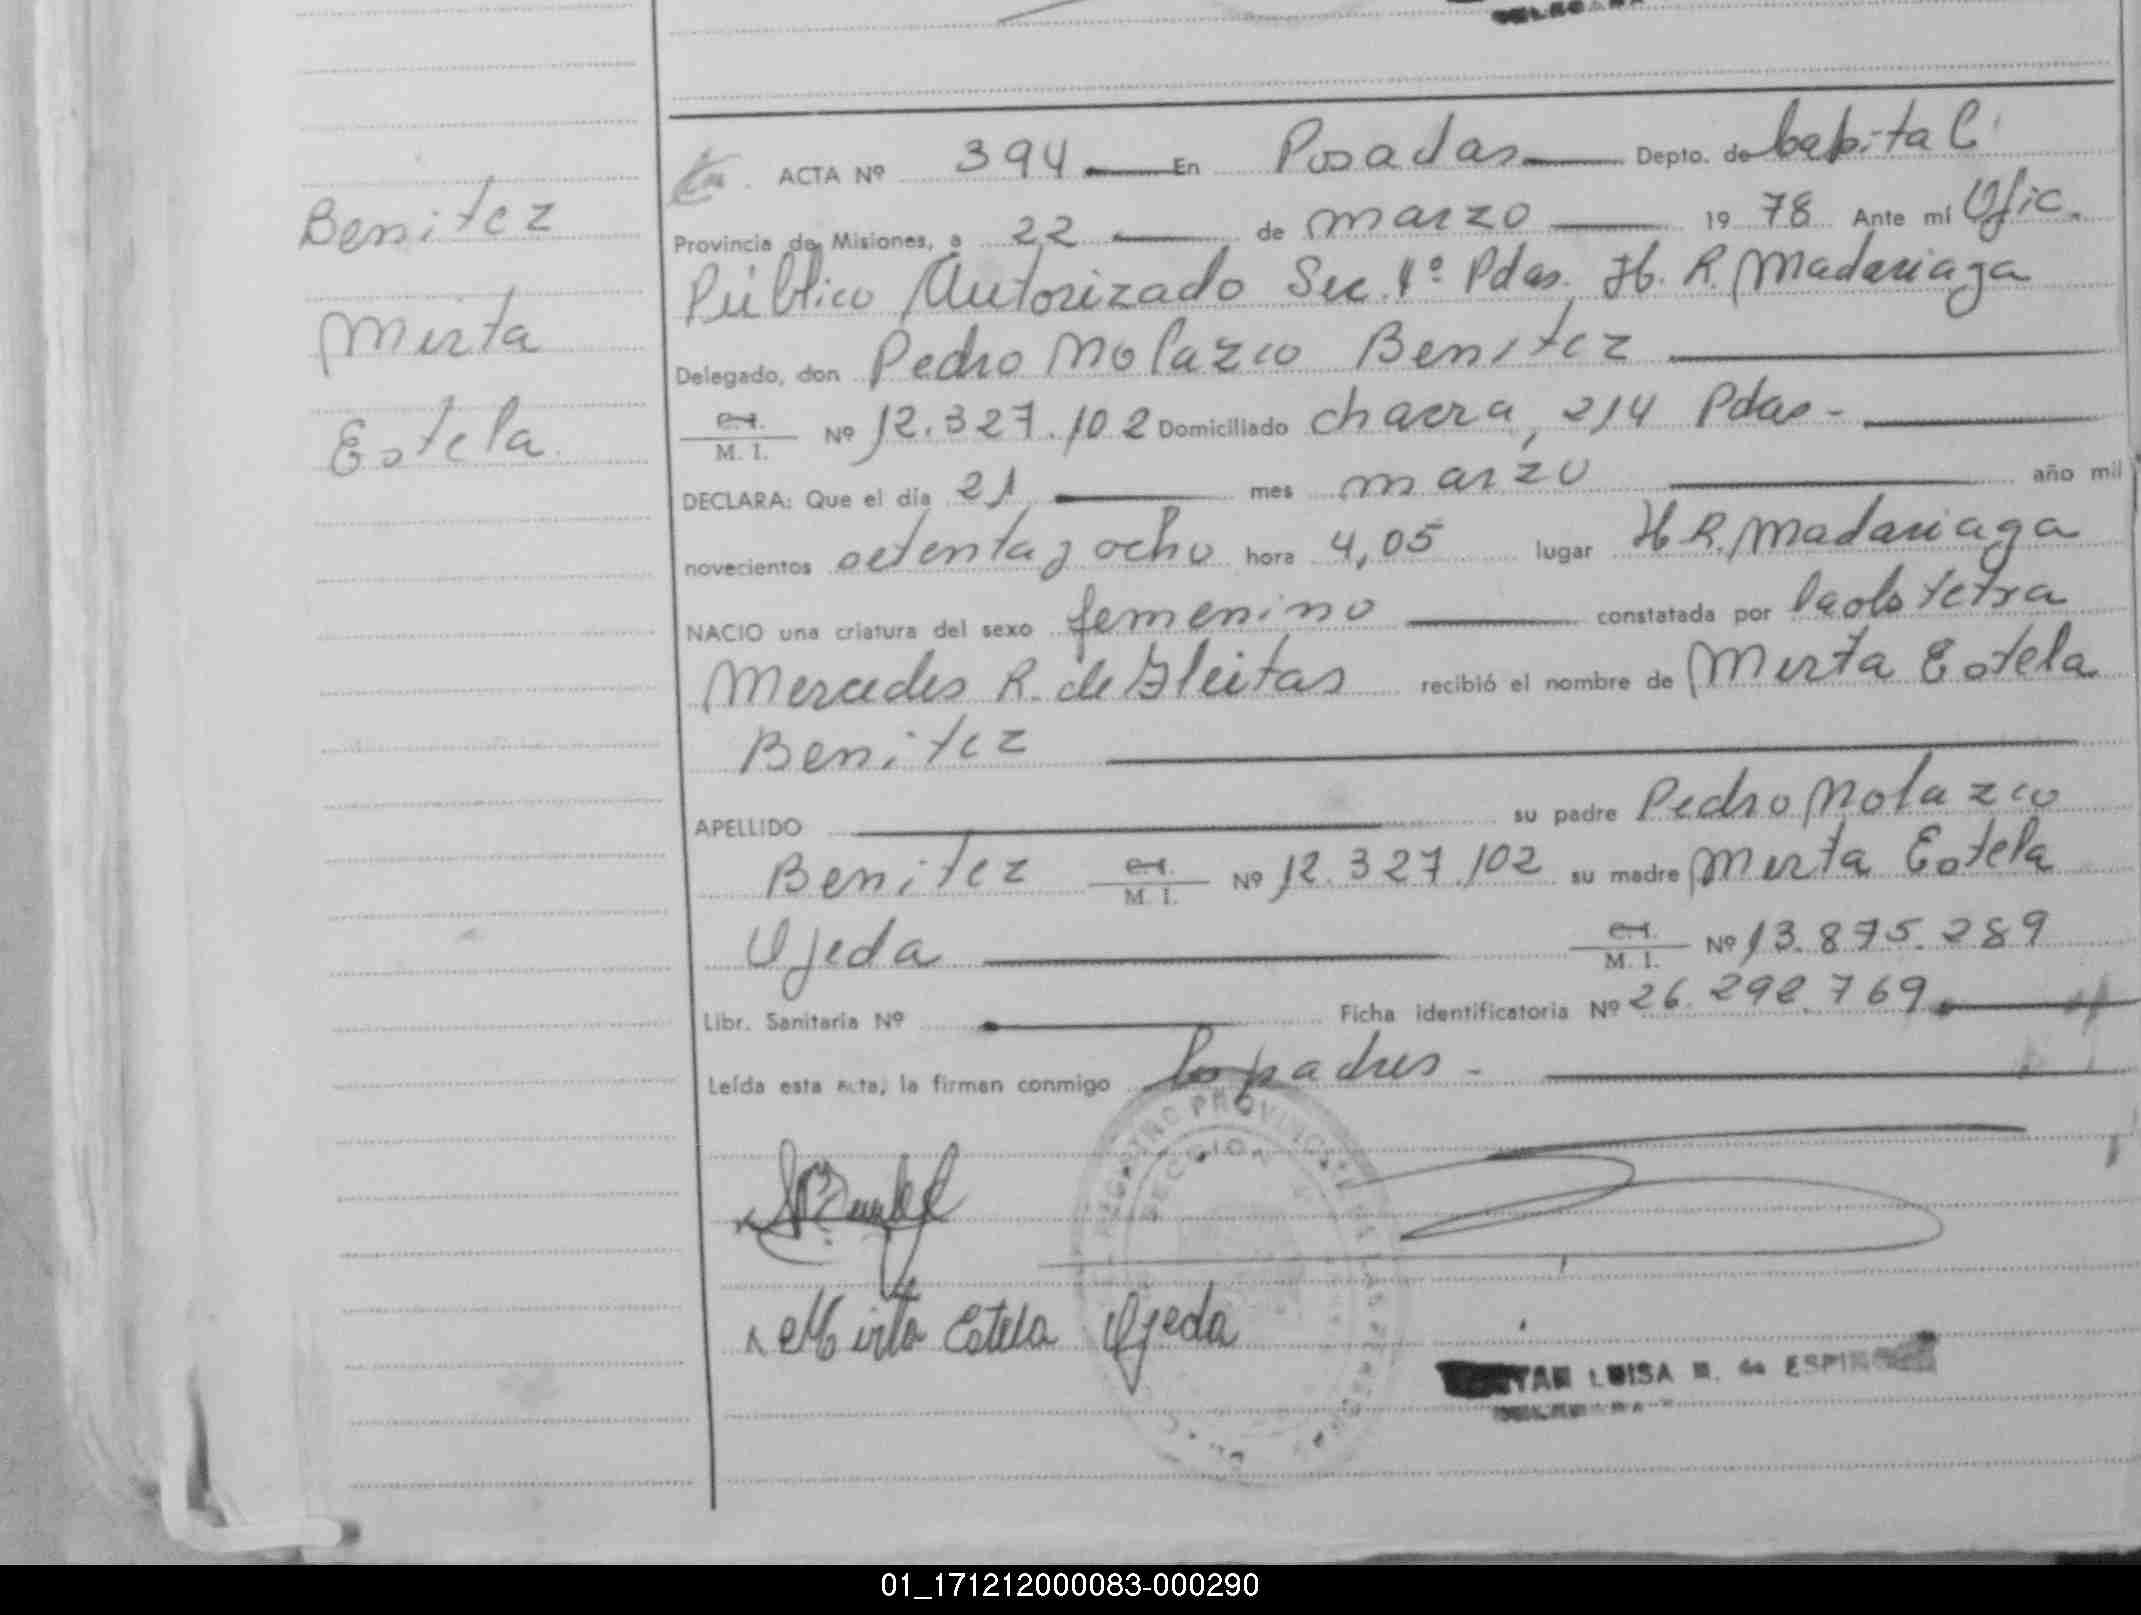 Benitez
Mirta
Estela
ACTA Nº 394 En Posadas Depto. de Capital
Provincia de Misiones, a 22 de marzo 19 78 Ante mí Ofic.
Público Autorizado Sec. 1º Pdas. H. R. Madariaga
Delegado, don Pedro Nolazco Benitez
C.I.
M. I. Nº 12.327.102 Domiciliado chacra, 214 Pdas-
DECLARA: Que el día 21 mes marzo año mil
novecientos setenta y ocho hora 4,05 lugar H R. Madariaga
NACIO una criatura del sexo femenino constatada por la obstetra
Mercedes R. de Gleitas recibió el nombre de Mirta Estela
Benitez
APELLIDO su padre Pedro Nolazco
Benitez C.I.
M. I. Nº 12.327.102 su madre Mirta Estela
Ojeda C.I.
M. I. Nº 13.875.289
Libr. Sanitaria Nº Ficha identificatoria Nº 26.292.769
Leída esta acta, la firman conmigo los padres -
REGISTRO PROVINCIAL DE LAS PERSONAS
SECCION
Mirta Estela Ojeda
LUISA de
01_171212000083-000290